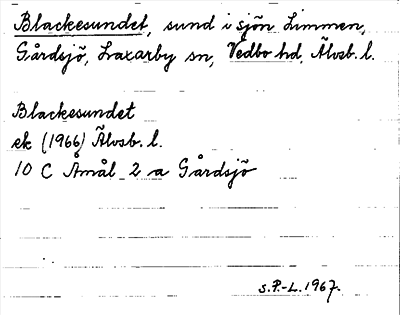 Blackesundet, sund i sjön Limmen,
Gårdsjö, Laxarby sn, Vedbo hd, Älvsb. l.
Blackesundet
ek (1966) Älvsb. l.
10 C Åmål 2 a Gårdsjö
S.P.-L. 1967.